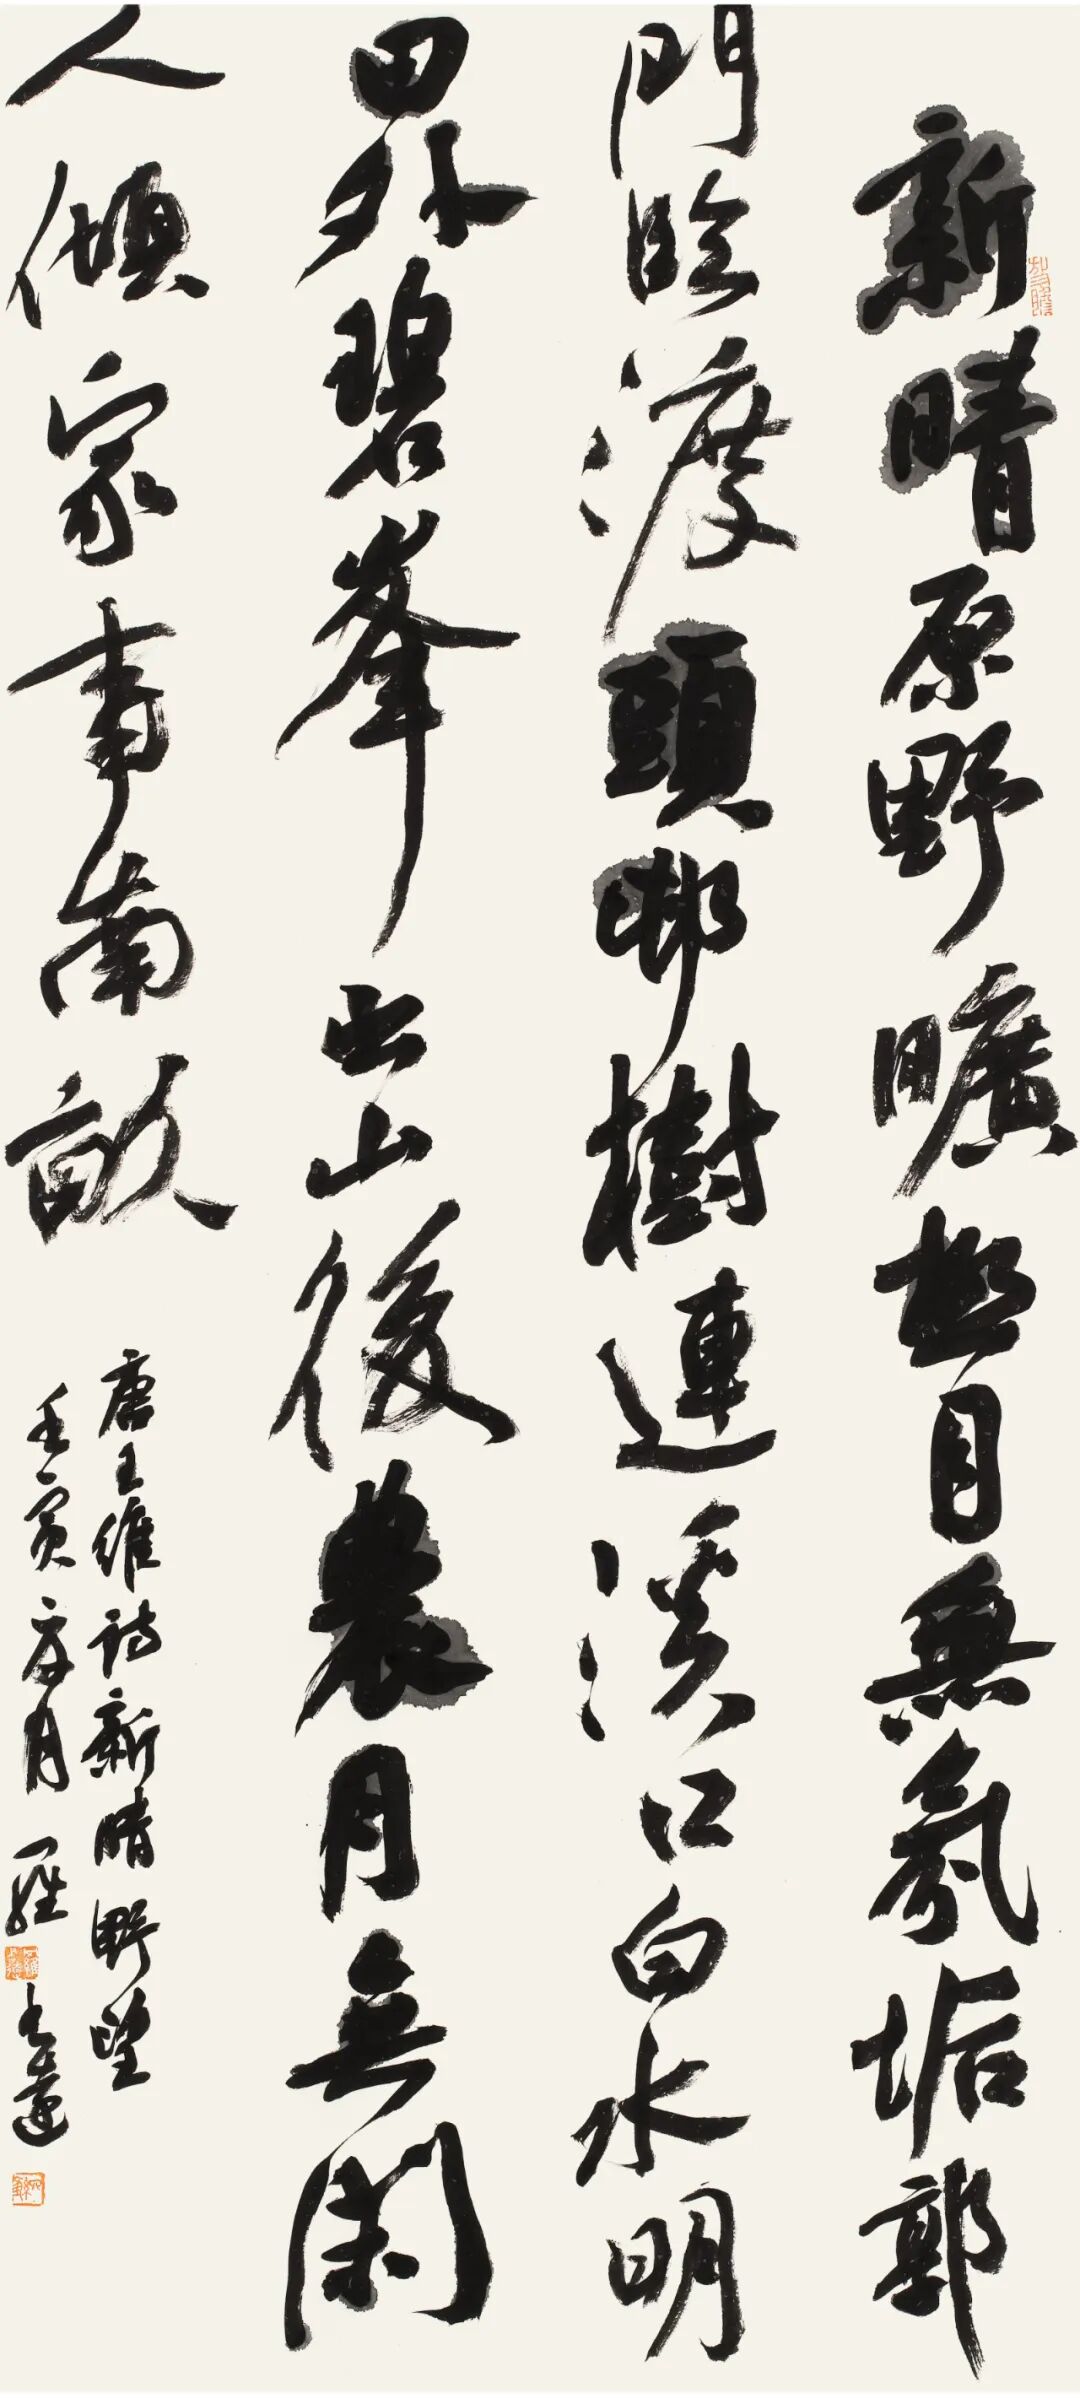 新晴原野曠極目無氛垢郭
門臨渡頭邨樹連溪口白水明
田外碧峯出山後農月無閑
人傾家事南畝
唐王維詩新晴野望
壬寅六月羅